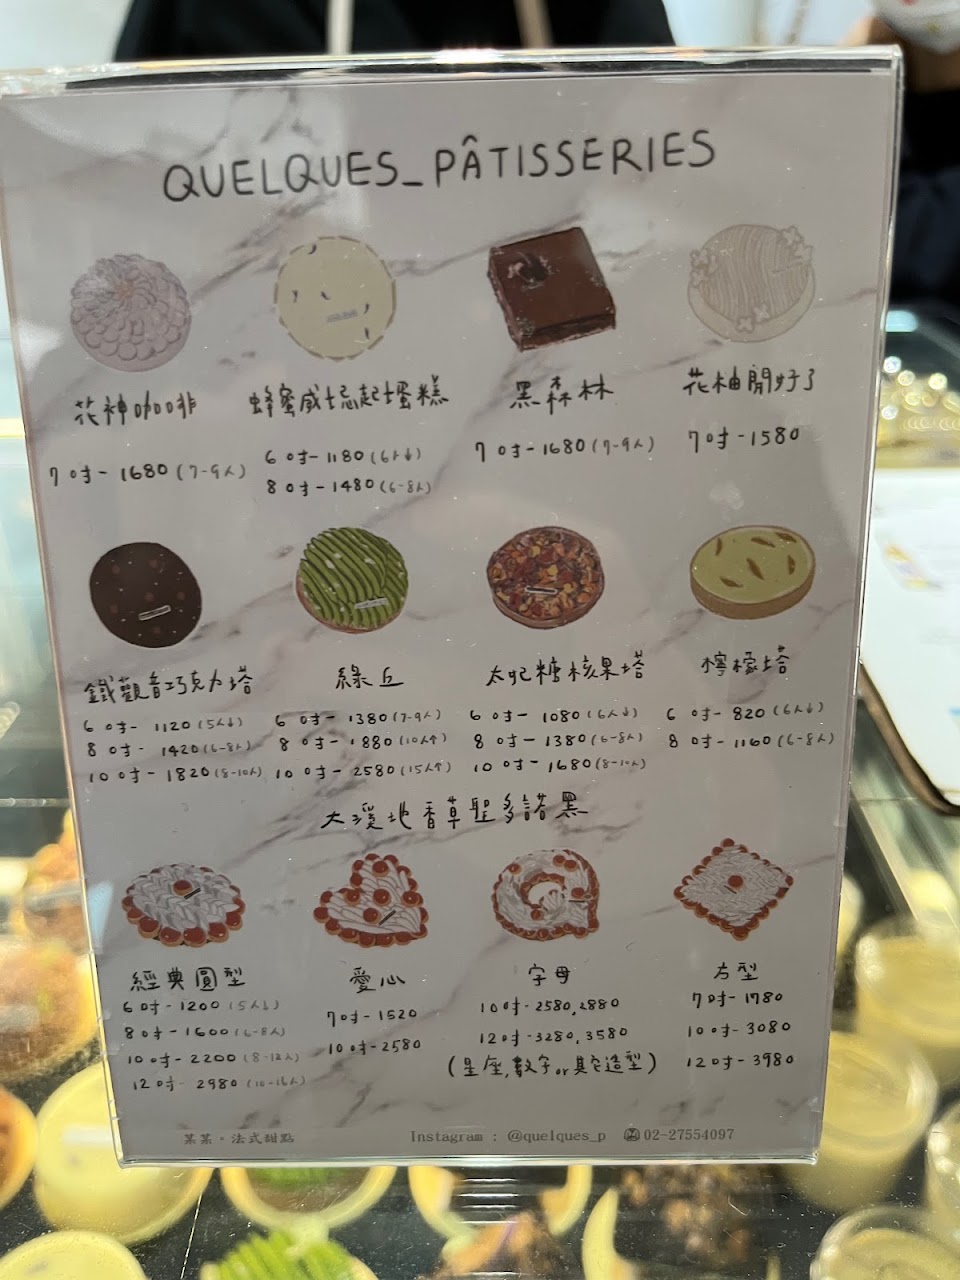 QUELQUES_PÂTISSERIES
花神咖啡
7吋-1680(7-9人)
蜂蜜威士忌起士蛋糕
6吋-1180(6人↓)
8吋-1480(6-8人)
黑森林
7吋-1680(7-9人)
花柚開好了
7吋-1580
鐵觀音巧克力塔
6吋-1120(5人↓)
8吋-1420(6-8人)
10吋-1820(8-10人)
綠丘
6吋-1380(7-9人)
8吋-1880(10人↑)
10吋-2580(15人↑)
太妃糖核果塔
6吋-1080(6人↓)
8吋-1380(6-8人)
10吋-1680(8-10人)
檸檬塔
6吋-820(6人↓)
8吋-1160(6-8人)
大溪地香草聖多諾黑
經典圓型
6吋-1200(5人↓)
8吋-1600(6-8人)
10吋-2200(8-12人)
12吋-2980(10-16人)
愛心
7吋-1520
10吋-2580
字母
10吋-2580,2880
12吋-3280,3580
(星座,數字or其它造型)
方型
7吋-1780
10吋-3080
12吋-3980
某某・法式甜點
Instagram : @quelques_p
02-27554097